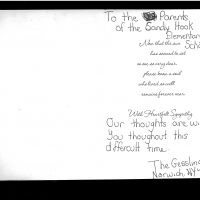 To the Parents
of the Sandy Hook
Elementary
School
Now that the sun
has seemed to set
on one so very dear,
please know a soul
who lived so well
remains forever near.
With Heartfelt Sympathy
Our thoughts are wi
You thoughout this
difficult time.
The Gessline
Norwich NY